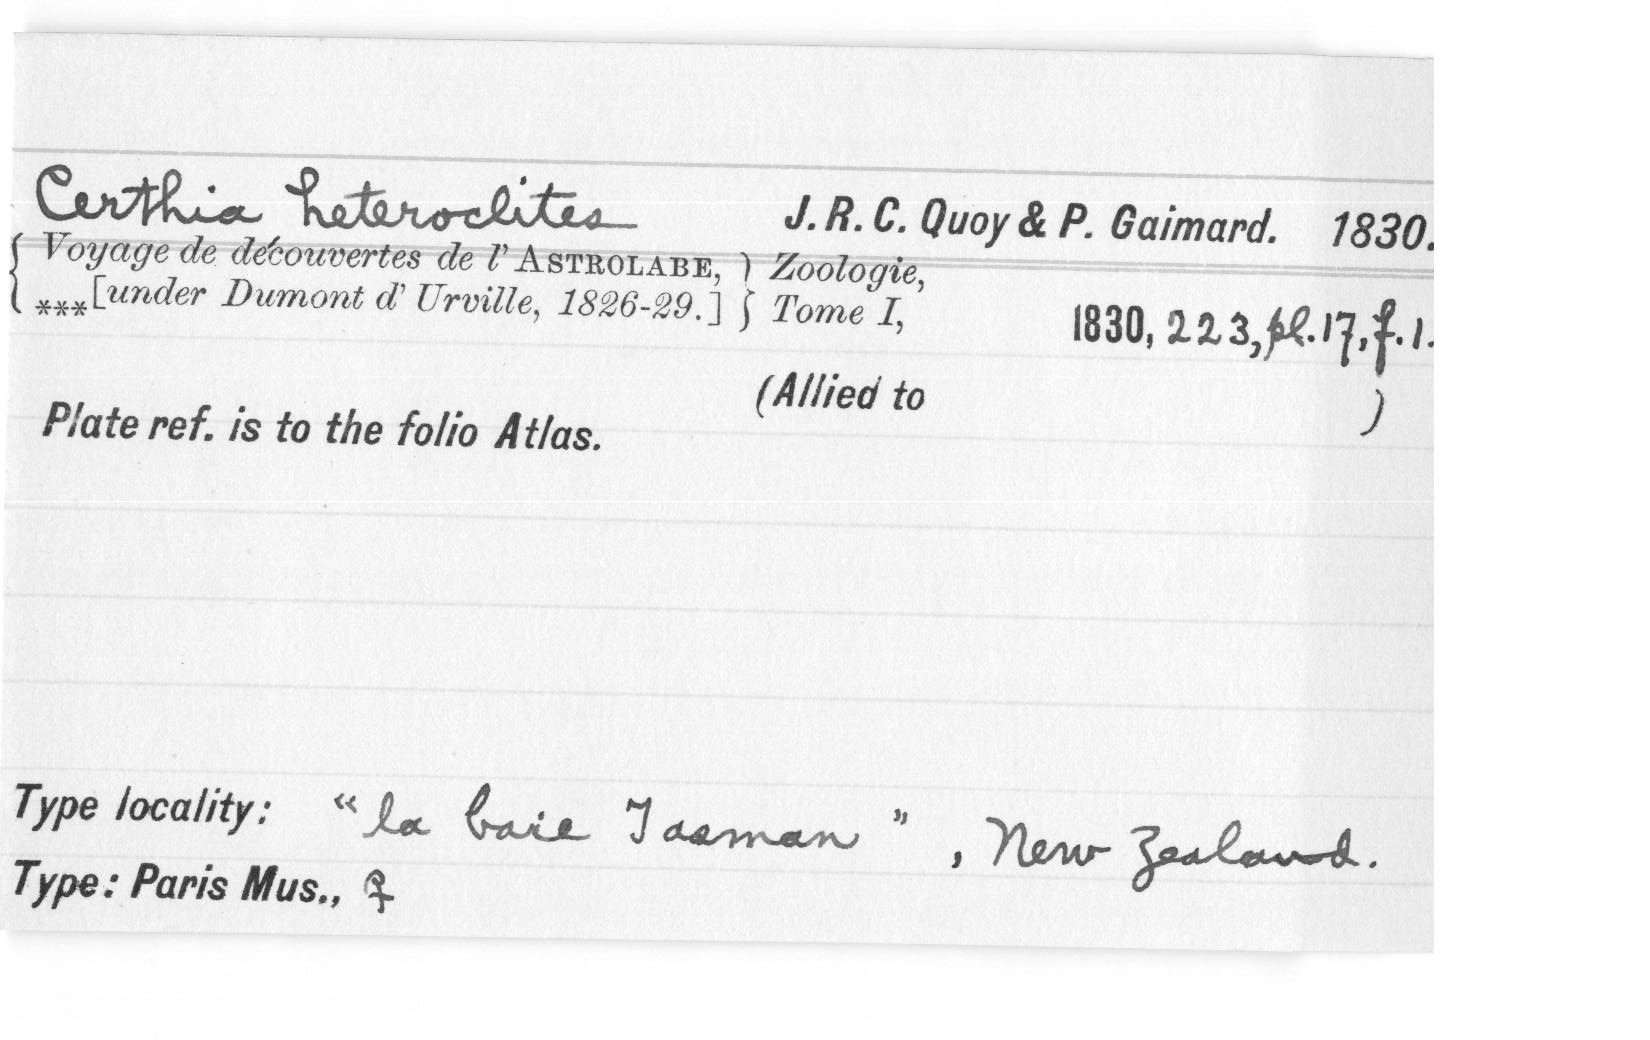 Certhia heteroclites J. R. C. Quoy & P. Gaimard. 1830.
{ Voyage de découvertes de l' ASTROLABE, } Zoologie,
{ ***[under Dumont d' Urville, 1826-29.] } Tome I, 1830, 223, pl. 17, f. 1.
(Allied to )
Plate ref. is to the folio Atlas.
Type locality: "la baie Tasman", New Zealand.
Type: Paris Mus., ♀